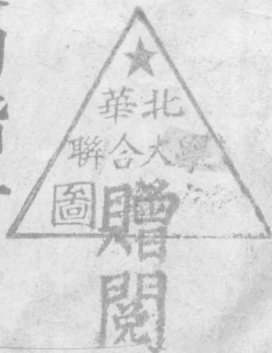 華北
聯合大學
圖
贈
閱